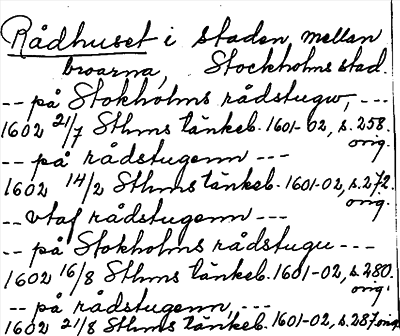 Rådhuset i staden mellan
broarna, Stockholms stad.
-- på Stokholms rådstugw, ---
1602 21/7 Sthms tänkeb. 1601-02, s. 258.
orig.
-- på rådstugenn ---
1602 14/2 Sthms tänkeb. 1601-02, s. 272.
orig.
-- vtaf rådstugenn ---
-- på Stokholms rådstugu ---
1602 16/8 Sthms tänkeb. 1601-02, s. 280.
orig.
-- på rådstugenn, ---
1602 21/8 Sthms tänkeb. 1601-02, s. 287 orig.